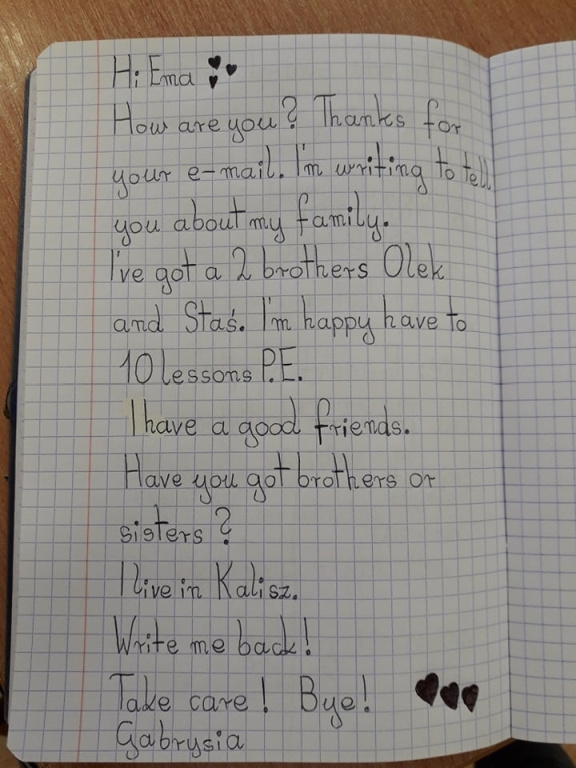 Hi Ema
How are you? Thanks for
your e-mail. I'm writing to tell
you about my family.
I've got a 2 brothers Olek
and Staś. I'm happy have to
10 lessons P.E.
I have a good friends.
Have you got brothers or
sisters?
I live in Kalisz.
Write me back!
Take care! Bye!
Gabrysia